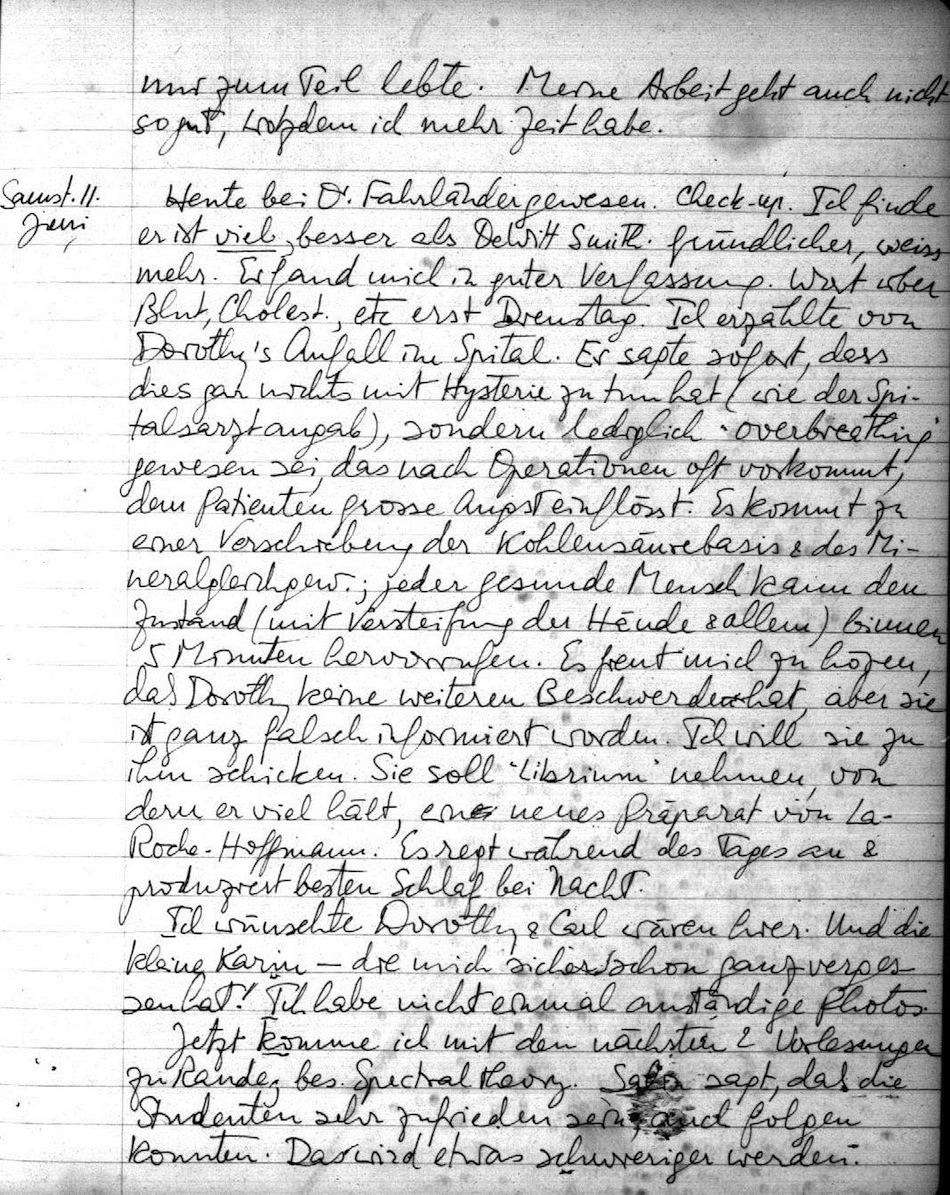 nur zum Teil lebte. Meine Arbeit geht auch nicht
so gut, trotzdem ich mehr Zeit habe.
Samst. 11.
Juni
Heute bei Dr. Fahrländer gewesen. Check-up. Ich finde
er ist viel besser als DeWitt Smith. Gründlicher, weiss
mehr. Er fand mich in guter Verfassung. Wort über
Blut, Cholest., etc erst Dienstag. Ich erzählte von
Dorothy's Anfall im Spital. Er sagte sofort, dass
dies gar nichts mit Hysterie zu tun hat (wie der Spi-
talsarzt angab), sondern lediglich "overbreathing"
gewesen sei, das nach Operationen oft vorkommt,
dem Patienten grosse Angst einflösst. Es kommt zu
einer Verschiebung der Kohlensäurebasis & des Mi-
neralgleichgew.; jeder gesunde Mensch kann den
Zustand (mit Versteifung der Hände & allem) binnen
5 Minuten hervorrufen. Es freut mich zu hören,
daß Dorothy keine weiteren Beschwerden hat, aber sie
ist ganz falsch informiert worden. Ich will sie zu
ihm schicken. Sie soll "Librium" nehmen, von
dem er viel hält, ein neues Präparat von La-
Roche-Hoffmann. Es regt während des Tages an &
produziert besten Schlaf bei Nacht.
Ich wünschte Dorothy & Carl wären hier. Und die
kleine Karin – die mich sicher schon ganz verges-
sen hat! Ich habe nicht einmal anständige Photos.
Jetzt komme ich mit den nächsten 2 Vorlesungen
zu Rande, bes. Spectral theory. sagt, daß die
Studenten sehr zufrieden sein, auch folgen
konnten. Das wird etwas schwieriger werden.